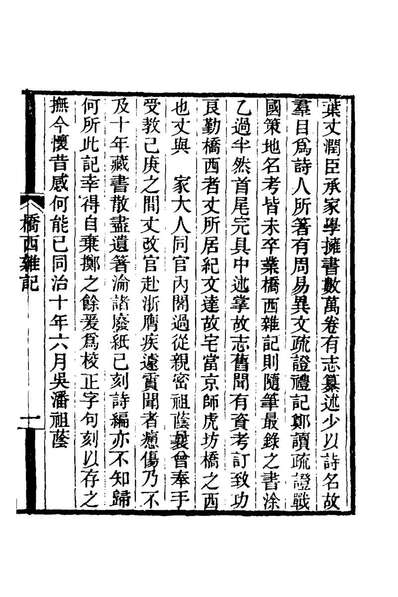 葉丈潤臣承家學擁書數萬卷有志纂述少以詩名故
羣目爲詩人所著有周易異文疏證禮記鄭讀疏證戰
國策地名考皆未卒業橋西雜記則隨筆最錄之書涂
乙過半然首尾完具中述掌故志舊聞有資考訂致功
良勤橋西者丈所居紀文達故宅當京師虎坊橋之西
也丈與　家大人同官內閣過從親密祖蔭曩曾奉手
受教己庚之間丈改官赴浙膺疾遠實聞者癋傷乃不
及十年藏書散盡遺箸淪諸廢紙已刻詩編亦不知歸
何所此記幸得自棄擲之餘爰爲校正字句刻以存之
撫今懷昔感何能已同治十年六月吳潘祖蔭
橋西雜記
一